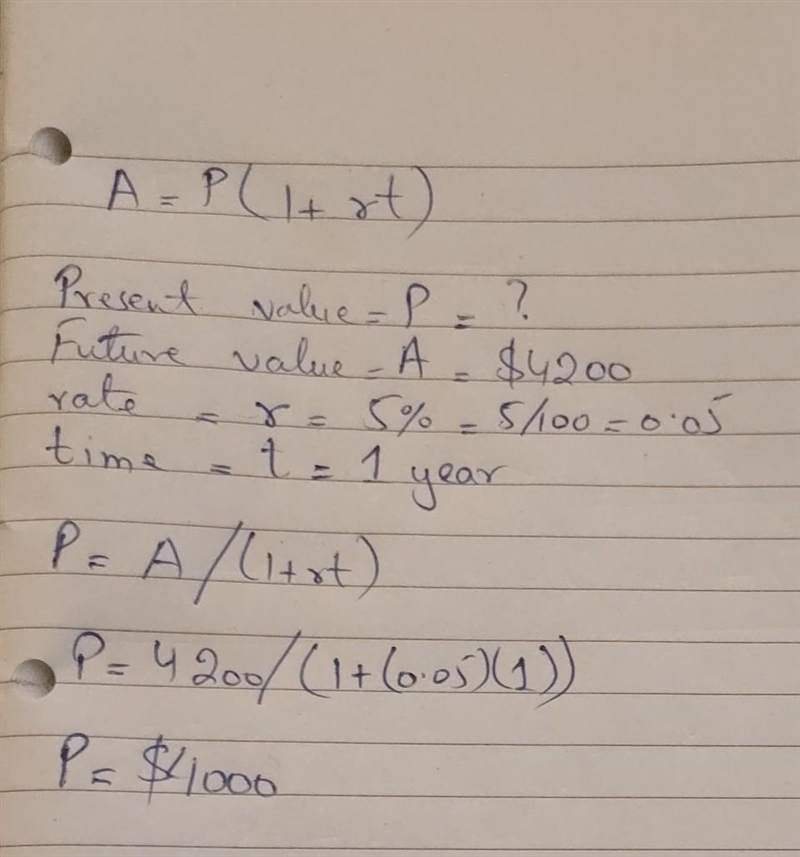 A = P(1+rt)
Present value = P = ?
Future value = A = $4200
rate = r = 5% = 5/100 = 0.05
time = t = 1 year
P = A/(1+rt)
P = 4200/(1+(0.05)(1))
P = $4000